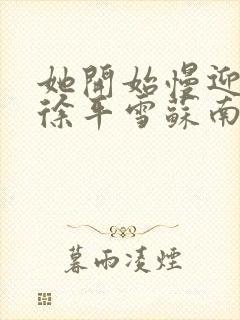 她開始慢迎
徐平雪蘇南
暮雨凌煙